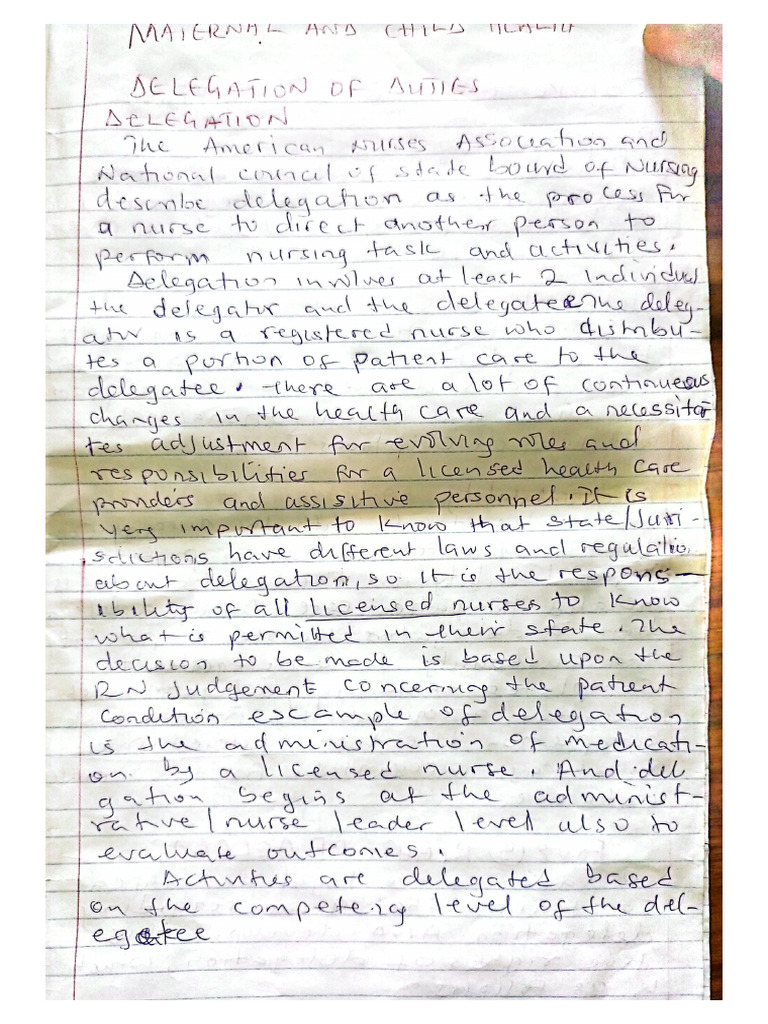 MATERNAL AND CHILD HEALTH
DELEGATION OF DUTIES
DELEGATION
The American Nurses Association and
National council of state board of Nursing
describe delegation as the process for
a nurse to direct another person to
perform nursing task and activities.
Delegation involves at least 2 individual
the delegator and the delegatee. The deleg-
ator is a registered nurse who distribu-
tes a portion of patient care to the
delegatee. there are a lot of continueous
changes in the health care and a necessita
tes adjustment for evolving roles and
responsibilities for a licensed health care
providers and assisitive personnel. It is
very important to know that state/juri-
sdictions have different laws and regulatio
about delegation, so it is the respons-
ibility of all licensed nurses to know
what is permitted in their state. The
decision to be made is based upon the
RN Judgement concerning the patient
condition escample of delegation
is the administration of medicati-
on. by a licensed nurse. And del
gation begins at the administ-
rative/nurse leader level also to
evaluate outcomes.
Activities are delegated based
on the competency level of the del-
egatee